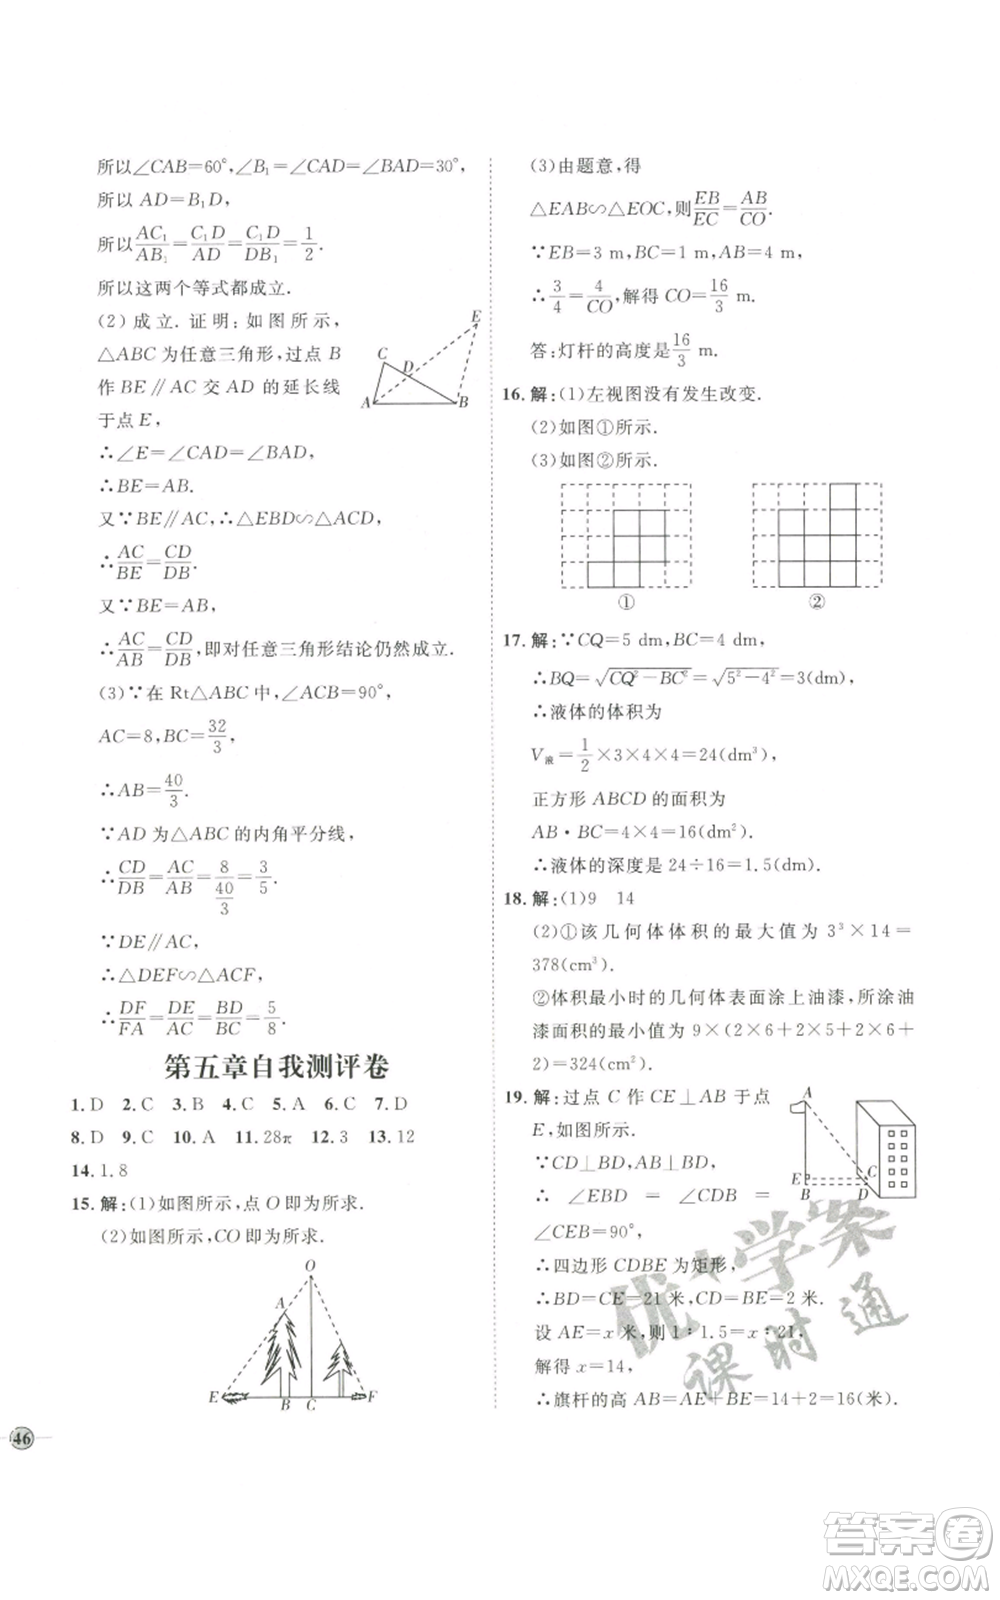 所以∠CAB=60°,∠B₁=∠CAD=∠BAD=30°,
所以 AD=B₁D,
所以 AC₁/AB₁=C₁D/AD=C₁D/DB₁=1/2.
所以这两个等式都成立.
(2) 成立. 证明:如图所示,
△ABC 为任意三角形,过点 B
作 BE∥AC 交 AD 的延长线
于点 E,
E
C
D
A
B
∴∠E=∠CAD=∠BAD,
∴BE=AB.
又∵BE∥AC,∴△EBD∽△ACD,
∴AC/BE=CD/DB.
又∵BE=AB,
∴AC/AB=CD/DB,即对任意三角形结论仍然成立.
(3)∵在 Rt△ABC 中,∠ACB=90°,
AC=8,BC=32/3,
∴AB=40/3.
∵AD 为△ABC 的内角平分线,
∴CD/DB=AC/AB=8/(40/3)=3/5.
∵DE∥AC,
∴△DEF∽△ACF,
∴DF/FA=DE/AC=BD/BC=5/8.
第五章自我测评卷
1. D 2. C 3. B 4. C 5. A 6. C 7. D
8. D 9. C 10. A 11. 28π 12. 3 13. 12
14. 1.8
15. 解:(1)如图所示,点 O 即为所求.
(2)如图所示,CO 即为所求.
O
A
E B C F
46
(3)由题意,得
△EAB∽△EOC,则EB/EC=AB/CO.
∵EB=3 m,BC=1 m,AB=4 m,
∴3/4=4/CO,解得 CO=16/3 m.
答:灯杆的高度是16/3 m.
16. 解:(1)左视图没有发生改变.
(2)如图①所示.
(3)如图②所示.
① ②
17. 解:∵CQ=5 dm,BC=4 dm,
∴BQ=√(CQ²−BC²)=√(5²−4²)=3(dm),
∴液体的体积为
V液=1/2×3×4×4=24(dm³),
正方形 ABCD 的面积为
AB·BC=4×4=16(dm²).
∴液体的深度是 24÷16=1.5(dm).
18. 解:(1)9 14
(2)①该几何体体积的最大值为 3³×14=
378(cm³).
②体积最小时的几何体表面涂上油漆,所涂油
漆面积的最小值为 9×(2×6+2×6+6×
2)=324(cm²).
19. 解:过点 C 作 CE⊥AB 于点
E,如图所示.
∵CD⊥BD,AB⊥BD,
∴ ∠EBD = ∠CDB =
∠CEB=90°,
A
E
C
B
D
∴四边形 CDBE 为矩形,
∴BD=CE=21 米,CD=BE=2 米.
设 AE=x 米,则 1∶1.5=x∶21,
解得 x=14,
∴旗杆的高 AB=AE+BE=14+2=16(米).
优+学案
课时通
答案卷
MXQE.COM